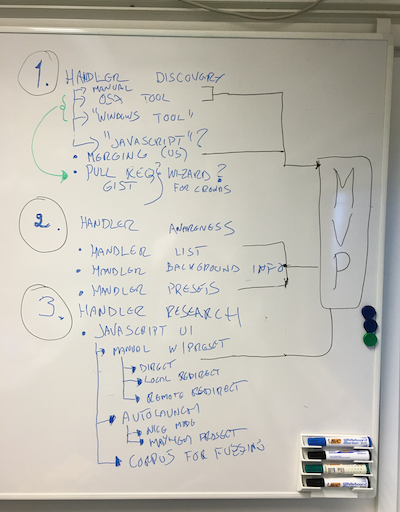 1. HANDLER DISCOVERY
MANUAL
OSA TOOL
"WINDOWS TOOL"
"JAVASCRIPT"?
• MERGING (US)
• PULL REQ? WIZARD?
GIST FOR CROWDS
2. HANDLER AWARENESS
• HANDLER LIST
• HANDLER BACKGROUND INFO
• HANDLER PRESETS
3. HANDLER RESEARCH
• JAVASCRIPT UI
MANUAL W/PRESET
DIRECT
LOCAL REDIRECT
REMOTE REDIRECT
AUTOLAUNCH
NICE MODE
MAYHEM PROJECT
CORPUS FOR FUZZING
MVP